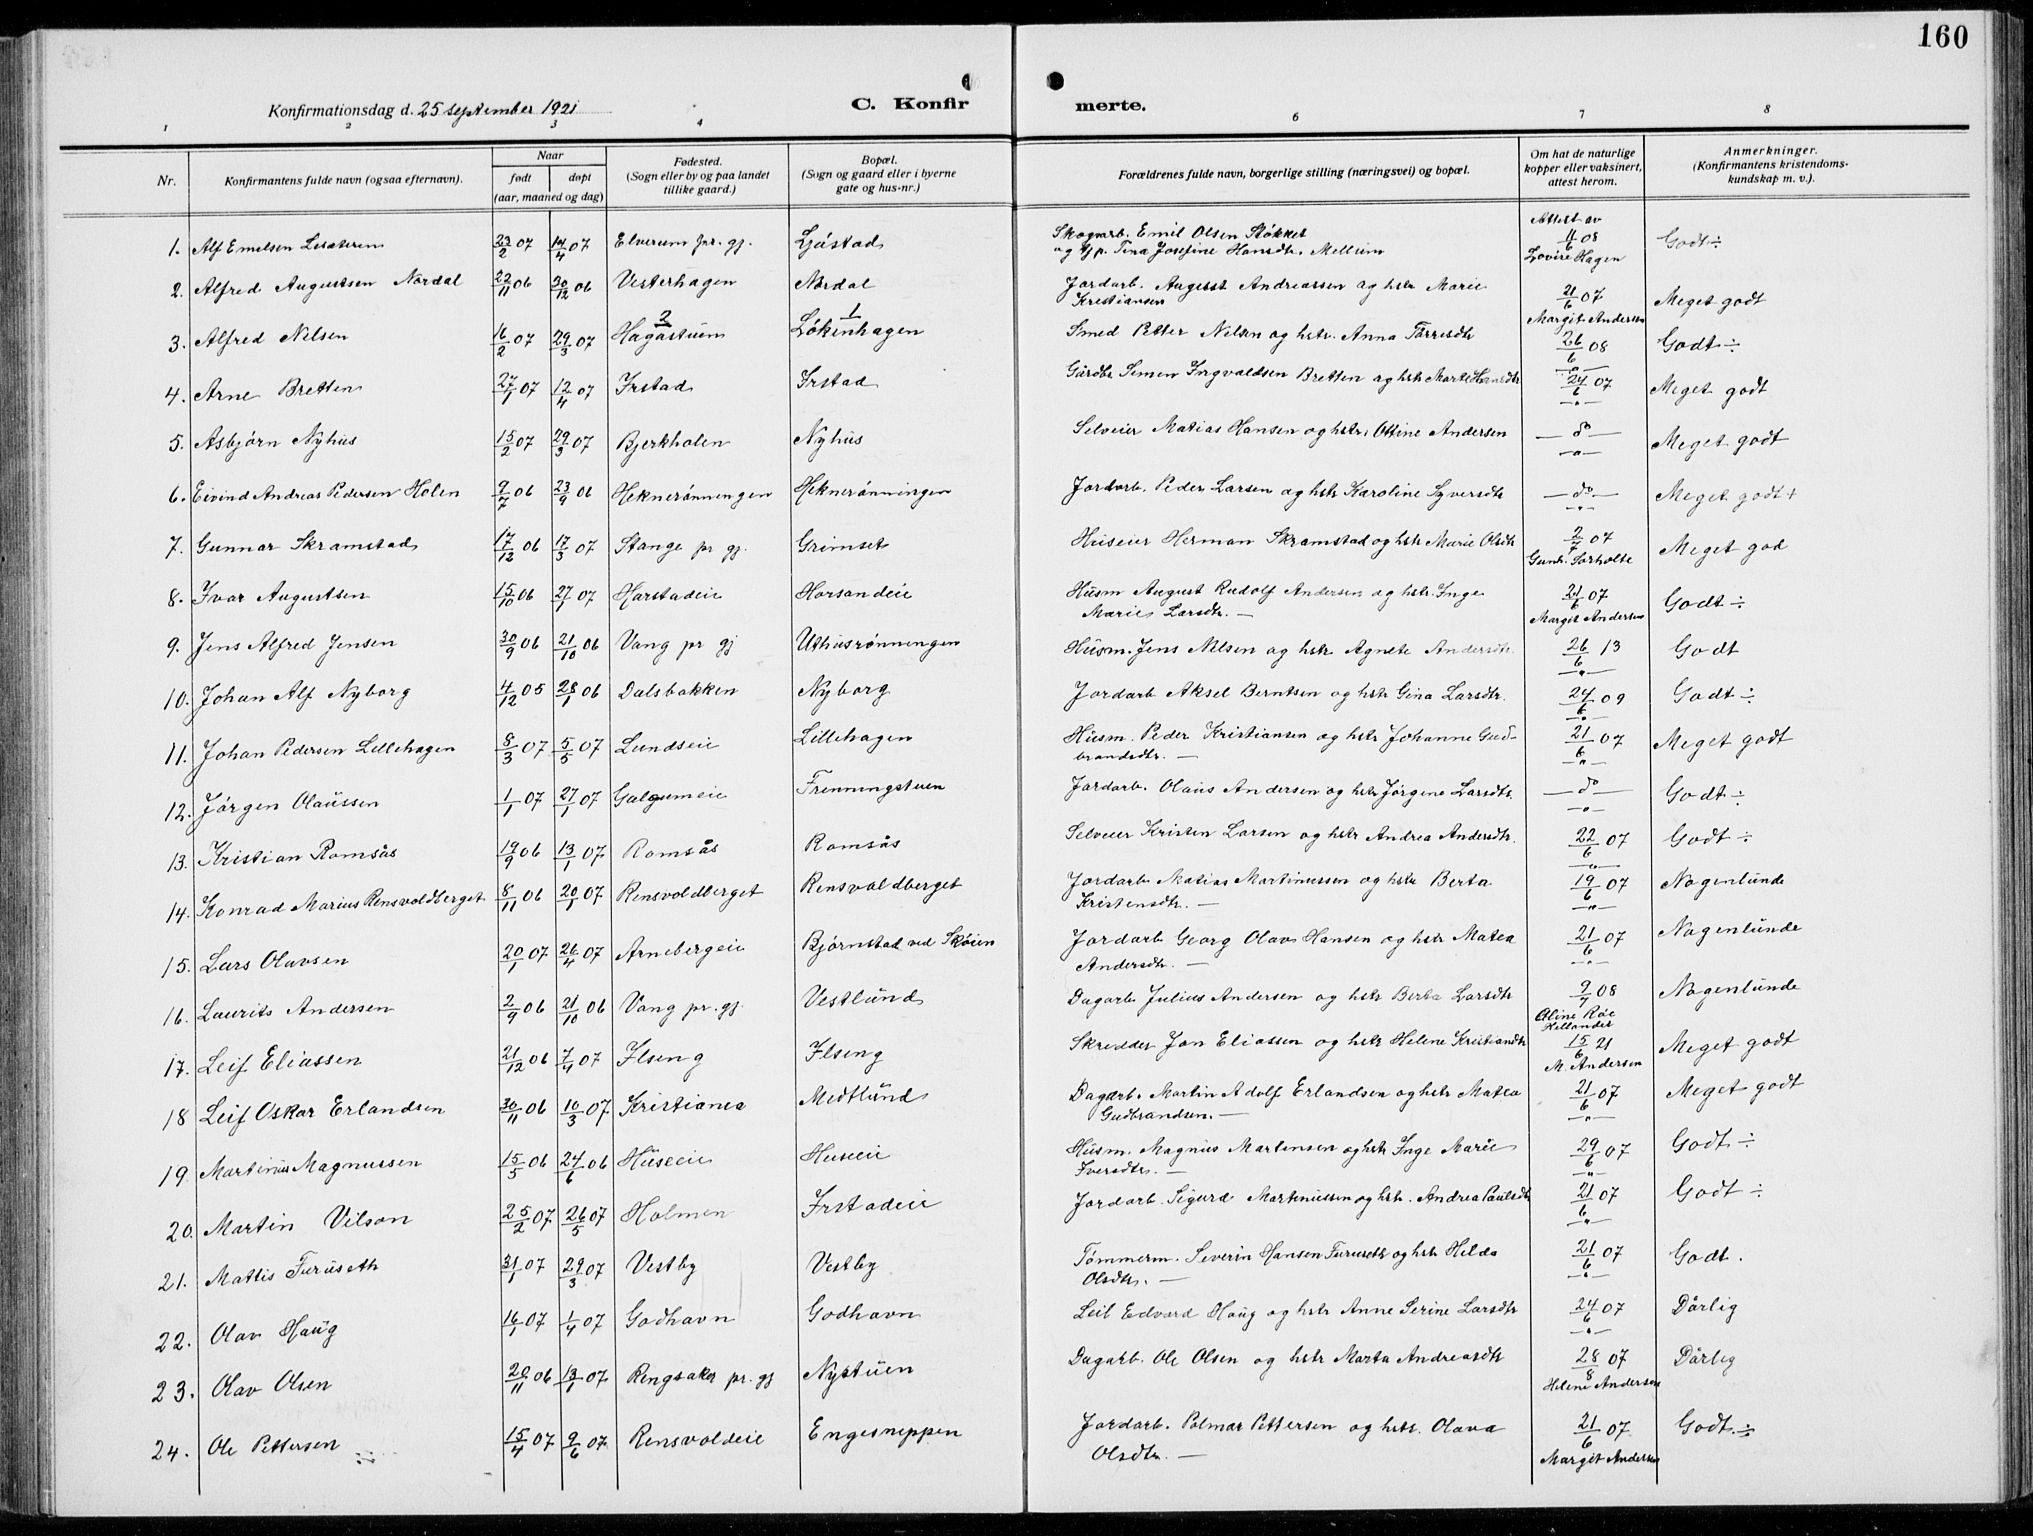 160
Konfirmationsdag d. 25 september 1921
C. Konfir
merte.
1 2 3 4 6 7 8
Nr.
Konfirmantens fulde navn (ogsaa efternavn).
Naar
født døpt
(aar, maaned og dag)
Fødested.
(Sogn eller by og paa landet
tillike gaard.)
Bopæl.
(Sogn og gaard eller i byerne
gate og hus-nr.)
Forældrenes fulde navn, borgerlige stilling (næringsvei) og bopæl.
Om hat de naturlige
kopper eller vaksinert,
attest herom.
Anmerkninger.
(Konfirmantens kristendoms-
kundskap m. v.).
1. Alf Emilsen 23/2 07 14/4 07 Elverum pr. gj. Gåstad Skogarb. Emil Olsen Støkket Attest av 11/6 08 Godt ÷
og Tina Josefine Hansdtr. Mellum Lovise Hagen
2. Alfred Augustsen Nordal 22/11 06 30/12 06 Vesterhagen Nordal Jordarb. August Andreassen og hstr Marie 21/6 07 Meget godt
Kristiansen Margit Andersen
3. Alfred Nilsen 16/2 07 29/3 07 Hagastuen 2 Løkenhagen 1 Smed Petter Nilsen og hstr. Anna Torresdtr 26/6 08 Godt ÷
4. Arne Bretten 27/1 07 12/4 07 Irstad Irstad Gårdbr Simen Ingvaldsen Bretten og hstr Marte Hansdtr 24/6 07 Meget godt
5. Asbjørn Nyhus 15/2 07 29/3 07 Bjerkholen Nyhus Selveier Matias Hansen og hstr. Ottine Andersen — do — Meget godt
6. Eivind Andreas Pedersen Holen 9/7 06 23/9 06 Heknerønningen Heknerønningen Jordarb. Peder Larsen og hstr Karoline Syversdtr — do — Meget godt +
7. Gunnar Skramstad 17/12 06 17/3 07 Stange pr gj. Grimset Huseier Herman Skramstad og hstr Marie Olsdtr 2/7 07 Meget god
Gunh. Sorholte
8. Ivar Augustsen 15/10 06 27/1 07 Harstadeie Horsandeie Husm August Rudolf Andersen og hstr. Inge 21/6 07 Godt ÷
Marie Larsdtr. — Margit Andersen
9. Jens Alfred Jensen 30/9 06 21/10 06 Vang pr gj Uthusrønningen Husm. Jens Nilsen og hstr Agnete Andersdtr. 26/6 13 Godt
10. Johan Alf Nyborg 4/12 05 28/1 06 Dalsbakken Nyborg Jordarb Aksel Berntsen og hstr Gina Larsdtr. 24/6 09 Godt ÷
11. Johan Pedersen Lillehagen 8/3 07 5/5 07 Lundseie Lillehagen Husm. Peder Kristiansen og hstr Johanne Gud- 21/6 07 Meget godt
brandsdtr. —
12. Jørgen Olaussen 1/1 07 27/1 07 Galgumeie Frenningstuen Jordarb. Olaus Andersen og hstr Jørgine Larsdtr. — do — Godt ÷
13. Kristian Romsås 19/9 06 13/1 07 Romsås Romsås Selveier Kristen Larsen og hstr Andrea Andersdtr. 22/6 07 Godt ÷
14. Konrad Marius Rensvoldberget 8/11 06 20/1 07 Rensvoldberget Rensvoldberget Jordarb Matias Martinussen og hstr Berta 19/6 07 Nogenlunde
Kristensdtr. —
15. Lars Olavsen 20/1 07 26/4 07 Arnebergeie Bjørnstad ved Skøien Jordarb Georg Olav Hansen og hstr Matea 21/6 07 Nogenlunde
Andersdtr. —
16. Laurits Andersen 2/9 06 21/10 06 Vang pr. gj. Vestlund Dagarb Julius Andersen og hstr Berta Larsdtr 9/7 08 Nogenlunde
Oline Røe
Hellander
17. Leif Eliassen 21/12 06 7/4 07 Ilseng Ilseng Skredder Jon Eliassen og hstr Helene Kristiandtr 15/6 21 Meget godt
M. Andersen
18 Leif Oskar Erlandsen 30/11 06 10/3 07 Kristiania Medlund Dagarb. Martin Adolf Erlandsen og hstr Matea 21/6 07 Meget godt
Gudbrandsen. —
19. Martinius Magnussen 15/5 06 24/6 06 Huseeie Huseeie Husm. Magnus Martinsen og hstr Inge Marie 29/6 07 Godt ÷
Iversdtr. —
20. Martin Vilson 25/2 07 26/5 07 Holmen Irstadeie Jordarb. Sigurd Martinussen og hstr. Andrea Paulsdtr 21/6 07 Godt ÷
21. Mattis Furuseth 31/1 07 29/3 07 Vestby Vestby Tømmerm. Severin Hansen Furuseth og hstr Hilda 21/6 07 Godt.
Olsdtr. —
22. Olav Haug 16/1 07 1/4 07 Godhavn Godhavn Leil Edvard Haug og hstr Anne Serine Larsdtr 24/6 07 Dårlig
23. Olav Olsen 20/11 06 13/1 07 Ringsaker pr. gj Nystuen Dagarb. Ole Olsen og hstr Marta Andreasdtr 28/8 07 Dårlig
Helene Andersen
24. Ole Pettersen 15/4 07 9/6 07 Rensvoldeie Engesneppen Jordarb. Palmar Pettersen og hstr. Olava 21/6 07 Godt ÷
Olsdtr. — Margit Andersen